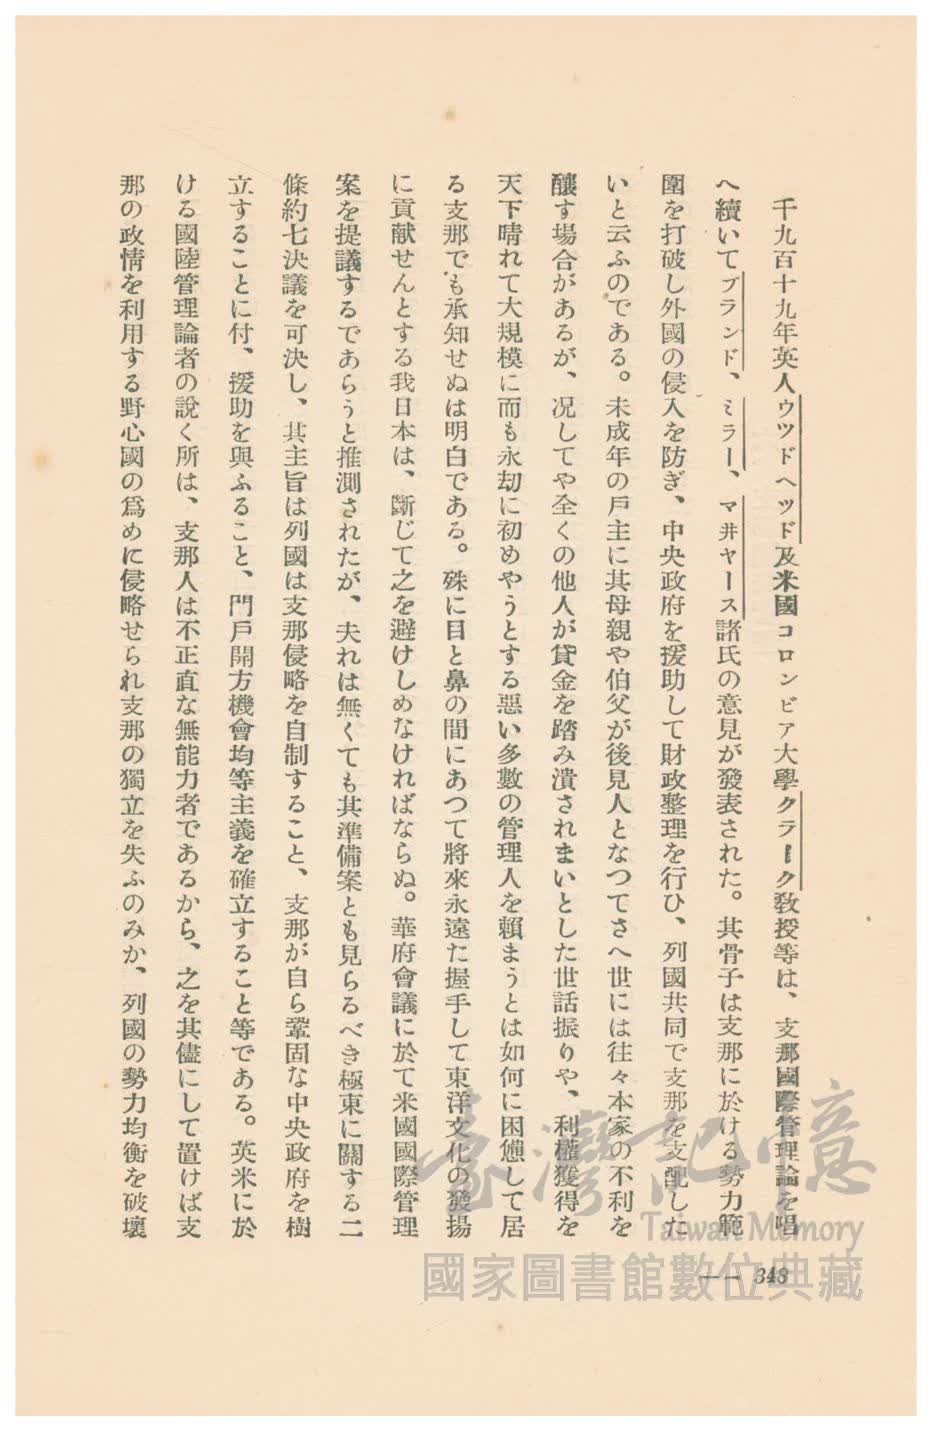 千九百十九年英人ウツドヘツド及米國コロンビア大學クラーク敎授等は、支那國際管理論を唱
へ續いてブランド、ミラー、マ井ヤース諸氏の意見が發表された。其骨子は支那に於ける勢力範
圍を打破し外國の侵入を防ぎ、中央政府を援助して財政整理を行ひ、列國共同で支那を支配した
いと云ふのである。未成年の戶主に其母親や伯父が後見人となつてさへ世には往々本家の不利を
釀す場合があるが、況してや全くの他人が貸金を踏み潰されまいとした世話振りや、利權獲得を
天下晴れて大規模に而も永劫に初めやうとする惡い多數の管理人を賴まうとは如何に困憊して居
る支那でも承知せぬは明白である。殊に目と鼻の間にあつて將來永遠た握手して東洋文化の發揚
に貢献せんとする我日本は、斷じて之を避けしめなければならぬ。華府會議に於て米國國際管理
案を提議するであらうと推測されたが、夫れは無くても其準備案とも見らるべき極東に關する二
條約七決議を可決し、其主旨は列國は支那侵略を自制すること、支那が自ら鞏固な中央政府を樹
立することに付、援助を與ふること、門戶開方機會均等主義を確立すること等である。英米に於
ける國陸管理論者の說く所は、支那人は不正直な無能力者であるから、之を其儘にして置けば支
那の政情を利用する野心國の爲めに侵略せられ支那の獨立を失ふのみか、列國の勢力均衡を破壞
348
臺灣記憶
Taiwan Memory
國家圖書館數位典藏